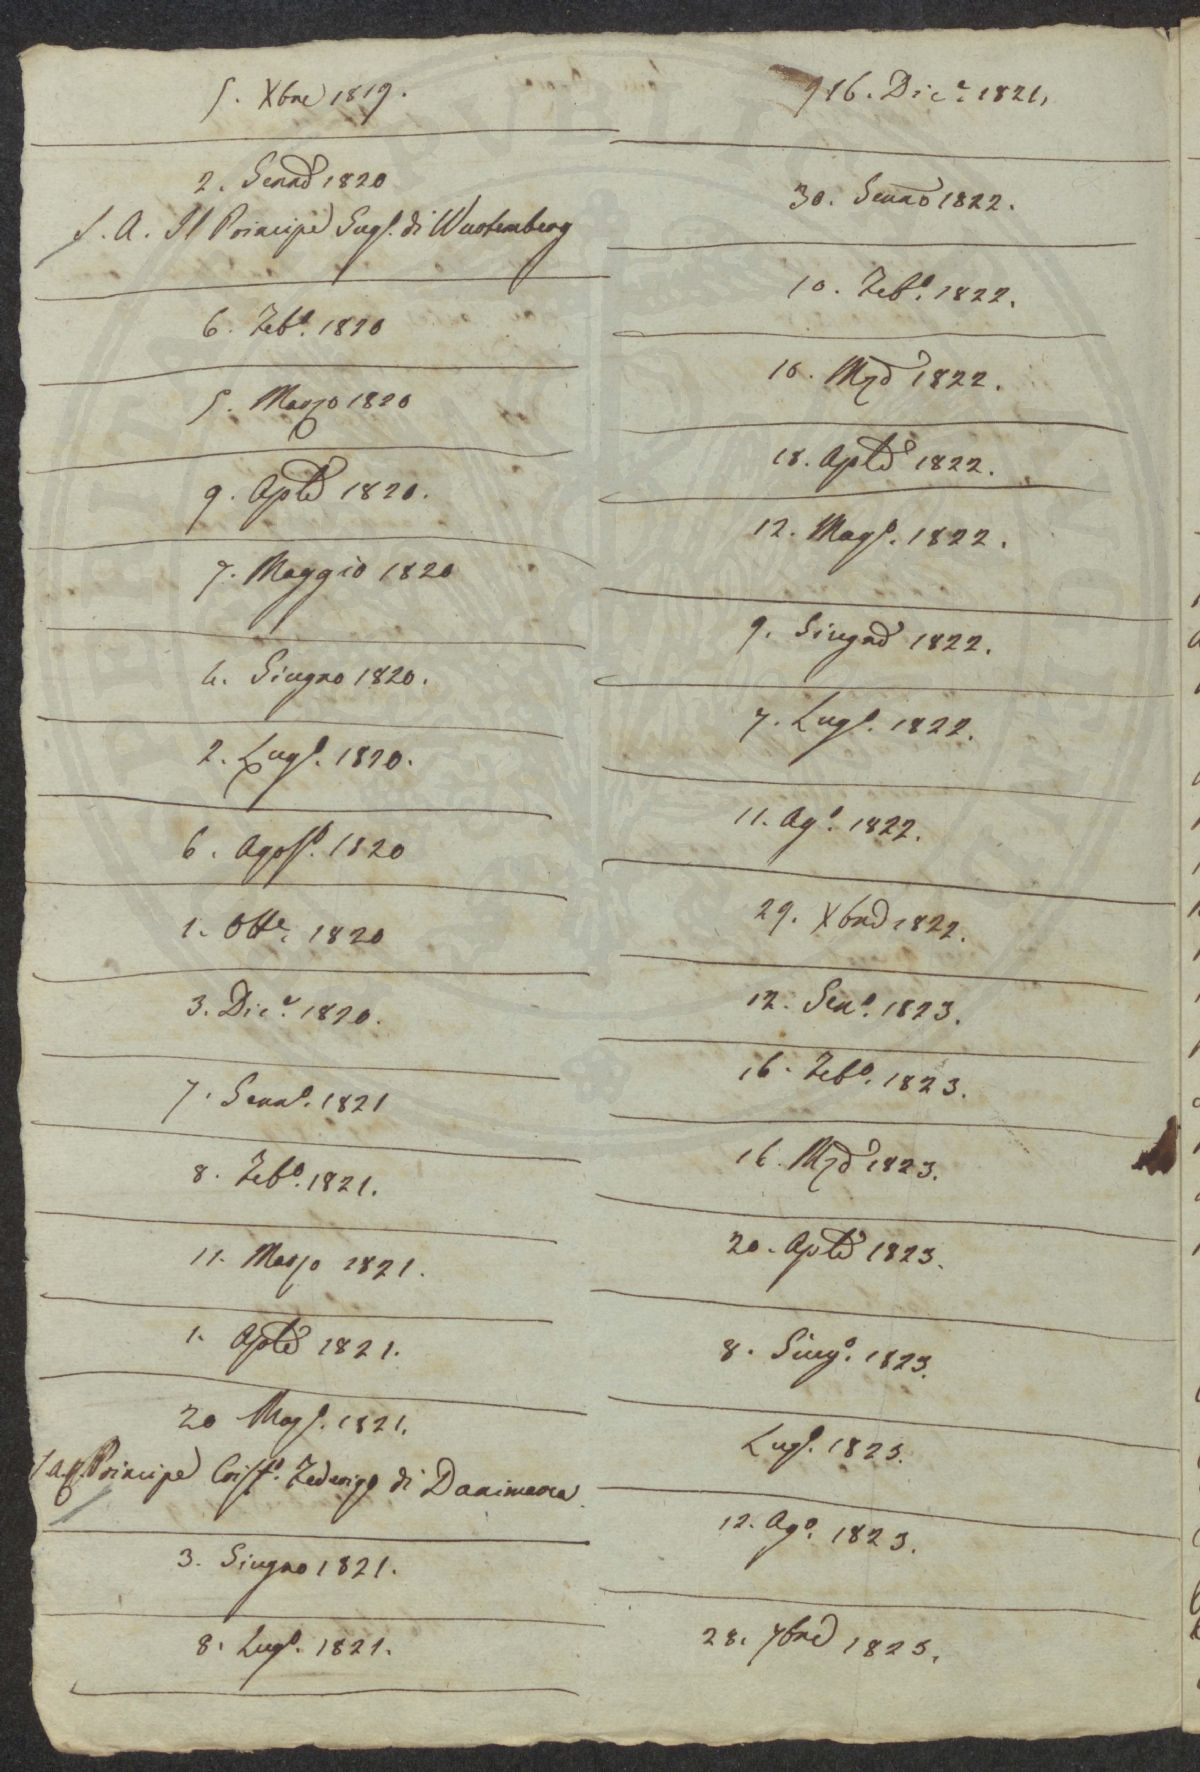 5. Xbre 1819.
2. Genno 1820
S. A. Il Principe Eugo. di Wurtemberg
6. Febo. 1820
5. Marzo 1820
9. Aple 1820.
7. Maggio 1820
4. Giugno 1820.
2. Lugo. 1820.
6. Agosto. 1820
1. Otte. 1820
3. Dice. 1820.
7. Genno. 1821
8. Febo. 1821.
11. Marzo 1821.
1. Aple 1821.
20 Mago. 1821.
Principe Cristo. Federigo di Danimarca
3. Giugno 1821.
8. Lugo. 1821.
16. Dice. 1821.
30. Genno 1822.
10. Febo. 1822.
10. Mzo 1822.
18. Aple 1822.
12. Mago. 1822.
9. Giugno 1822.
7. Lugo. 1822.
11. Ago. 1822.
29. Xbre 1822.
12. Geno. 1823.
16. Febo. 1823.
16. Mzo 1823.
20. Aple 1823.
8. Giugo. 1823.
Lugo. 1823.
12. Ago. 1823.
28. 7bre 1823.